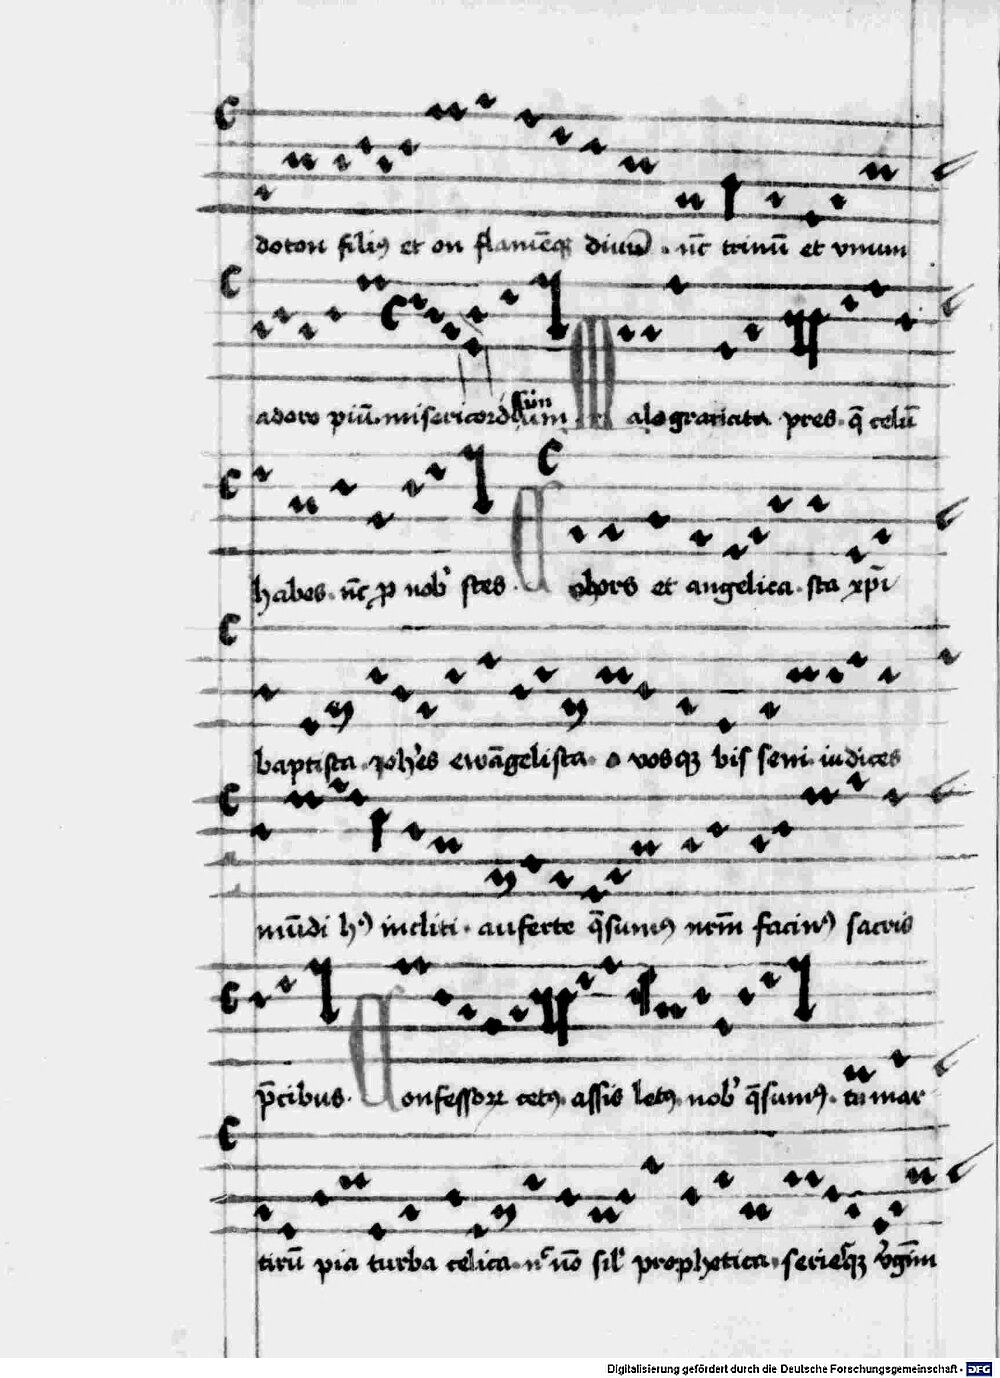 doton filiꝰ et on flamēqꝫ diuū · nc̄ trinū et vnum
adoro piū · misericordissimum · Male graciata pres · q̄ celū
habes · nc̄ ꝓ nobꝭ stes · Cohors et angelica · sta xp̄i
baptista · Joh̄es ewāgelista · o vosqꝫ bis seni iudices
mūdi hꝰ incliti · auferte q̄sumꝰ nrm̄ facinꝰ sacris
p̄cibus · Confessoꝝ cetꝰ assis letꝰ nobꝭ q̄sumꝰ · tu mar
tirū pia turba celica · sil' prophetica · serieqꝫ v̓gīnū
Digitalisierung gefördert durch die Deutsche Forschungsgemeinschaft - DFG